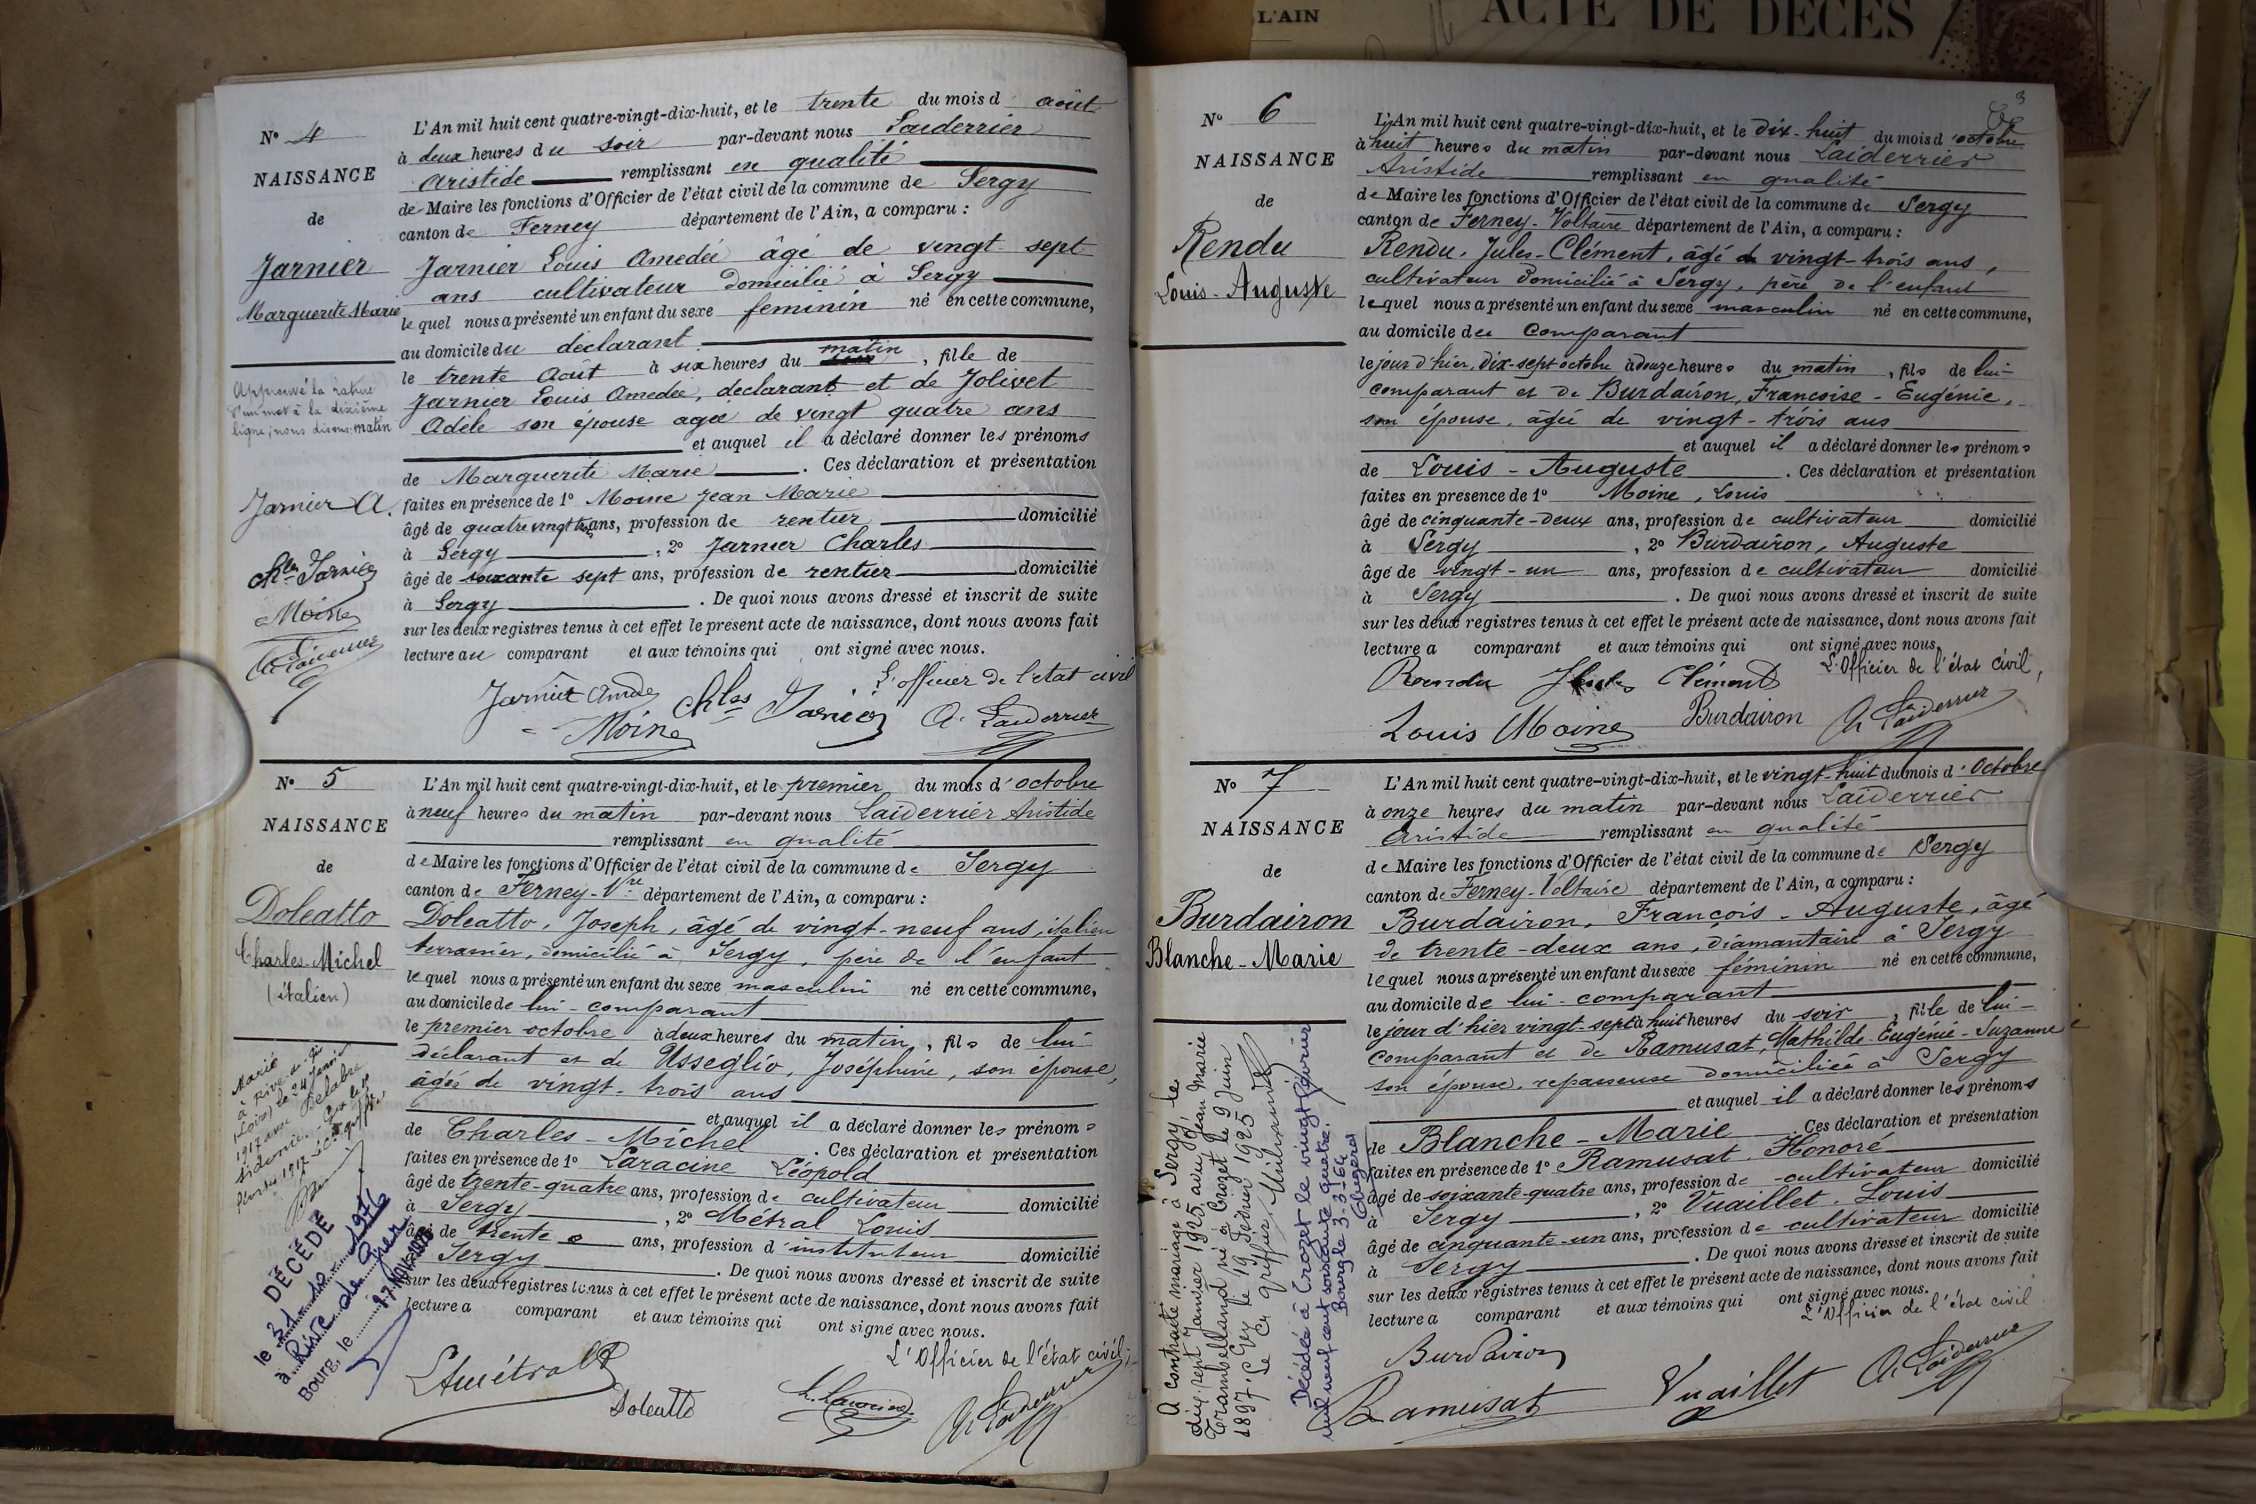 L'AIN
ACTE DE DÉCÈS
N° 4
NAISSANCE
de
Jarnier
Marguerite Marie
Approuvé la rature
d'un mot à la dixième
ligne; nous disons matin
Jarnier A.
Chles Jarnier
Moine
A. Laiderrier
L'An mil huit cent quatre-vingt-dix-huit, et le trente du mois d août
à deux heures du soir par-devant nous Laiderrier
Aristide remplissant en qualité
de Maire les fonctions d'Officier de l'état civil de la commune de Sergy
canton de Ferney département de l'Ain, a comparu :
Jarnier Louis Amedée âgé de vingt sept
ans cultivateur domicilié à Sergy
lequel nous a présenté un enfant du sexe feminin né en cette commune,
au domicile du déclarant
le trente Août à six heures du matin, fille de
Jarnier Louis Amedée, declarant et de Jolivet
Adèle son épouse agée de vingt quatre ans
et auquel il a déclaré donner les prénoms
de Marguerite Marie. Ces déclaration et présentation
faites en présence de 1° Moine Jean Marie
âgé de quatre vingt ans, profession de rentier domicilié
à Sergy, 2° Jarnier Charles
âgé de soixante sept ans, profession de rentier domicilié
à Sergy. De quoi nous avons dressé et inscrit de suite
sur les deux registres tenus à cet effet le présent acte de naissance, dont nous avons fait
lecture au comparant et aux témoins qui ont signé avec nous.
L'officier de l'etat civil
Jarnier Amde Chles Jarnier A. Laiderrier
Moine
N° 5
NAISSANCE
de
Doleatto
Charles-Michel
(italien)
Marié
à Rive-de-Gier
(Loire) le 24 Janvier
1917 avec Delabre
Sidonie. Gex le 10
Février 1917 Le Greffier
DÉCÉDÉ
le 31 10 1976
à Rive de Gier
Bourg, le 17 NOV. 1976
L'An mil huit cent quatre-vingt-dix-huit, et le premier du mois d'octobre
à neuf heures du matin par-devant nous Laiderrier Aristide
remplissant en qualité
de Maire les fonctions d'Officier de l'état civil de la commune de Sergy
canton de Ferney-Vre département de l'Ain, a comparu :
Doleatto, Joseph, âgé de vingt-neuf ans, italien
terrassier, domicilié à Sergy, père de l'enfant
lequel nous a présenté un enfant du sexe masculin né en cette commune,
au domicile de lui-comparant
le premier octobre à deux heures du matin, fils de lui-
déclarant et de Usseglio, Joséphine, son épouse,
âgée de vingt-trois ans
et auquel il a déclaré donner les prénoms
de Charles-Michel. Ces déclaration et présentation
faites en présence de 1° Laracine Léopold
âgé de trente-quatre ans, profession de cultivateur domicilié
à Sergy, 2° Métral Louis
âgé de trente ans, profession d'instituteur domicilié
à Sergy. De quoi nous avons dressé et inscrit de suite
sur les deux registres tenus à cet effet le présent acte de naissance, dont nous avons fait
lecture a comparant et aux témoins qui ont signé avec nous.
L'Officier de l'état civil,
LMétral
Doleatto L. Laracine A. Laiderrier
3
N° 6
NAISSANCE
de
Rendu
Louis-Auguste
L'An mil huit cent quatre-vingt-dix-huit, et le dix-huit du mois d'octobre
à huit heures du matin par-devant nous Laiderrier
Aristide remplissant en qualité
de Maire les fonctions d'Officier de l'état civil de la commune de Sergy
canton de Ferney-Voltaire département de l'Ain, a comparu :
Rendu, Jules-Clément, âgé de vingt-trois ans,
cultivateur domicilié à Sergy, père de l'enfant
lequel nous a présenté un enfant du sexe masculin né en cette commune,
au domicile du comparant
le jour d'hier, dix-sept octobre à douze heures du matin, fils de lui-
comparant et de Burdairon, Françoise-Eugénie,
son épouse, âgée de vingt-trois ans
et auquel il a déclaré donner les prénoms
de Louis-Auguste. Ces déclaration et présentation
faites en présence de 1° Moine, Louis
âgé de cinquante-deux ans, profession de cultivateur domicilié
à Sergy, 2° Burdairon, Auguste
âgé de vingt-un ans, profession de cultivateur domicilié
à Sergy. De quoi nous avons dressé et inscrit de suite
sur les deux registres tenus à cet effet le présent acte de naissance, dont nous avons fait
lecture a comparant et aux témoins qui ont signé avec nous.
L'Officier de l'état civil,
Rendu Jules Clément
Louis Moine Burdairon A. Laiderrier
N° 7
NAISSANCE
de
Burdairon
Blanche-Marie
A contracté mariage à Sergy le
dix-sept Janvier 1925 avec Jean Marie
Grambelland né à Crozet le 9 Juin
1897. Gex le 19 Février 1925
Le Greffier
Décédée à Crozet le vingt février
mil neuf cent soixante quatre.
Bourg le 3-3-1964
L'An mil huit cent quatre-vingt-dix-huit, et le vingt-huit du mois d'Octobre
à onze heures du matin par-devant nous Laiderrier
Aristide remplissant en qualité
de Maire les fonctions d'Officier de l'état civil de la commune de Sergy
canton de Ferney-Voltaire département de l'Ain, a comparu :
Burdairon, François-Auguste, âgé
de trente-deux ans, diamantaire à Sergy
lequel nous a présenté un enfant du sexe féminin né en cette commune,
au domicile de lui-comparant
le jour d'hier vingt-sept à huit heures du soir, fille de lui-
comparant et de Ramusat, Mathilde-Eugénie-Suzanne
son épouse, repasseuse domiciliée à Sergy
et auquel il a déclaré donner les prénoms
de Blanche-Marie. Ces déclaration et présentation
faites en présence de 1° Ramusat Honoré
âgé de soixante-quatre ans, profession de cultivateur domicilié
à Sergy, 2° Vuaillet Louis
âgé de cinquante-un ans, profession de cultivateur domicilié
à Sergy. De quoi nous avons dressé et inscrit de suite
sur les deux registres tenus à cet effet le présent acte de naissance, dont nous avons fait
lecture a comparant et aux témoins qui ont signé avec nous.
L'Officier de l'état civil
Burdairon
Ramusat Vuaillet A. Laiderrier